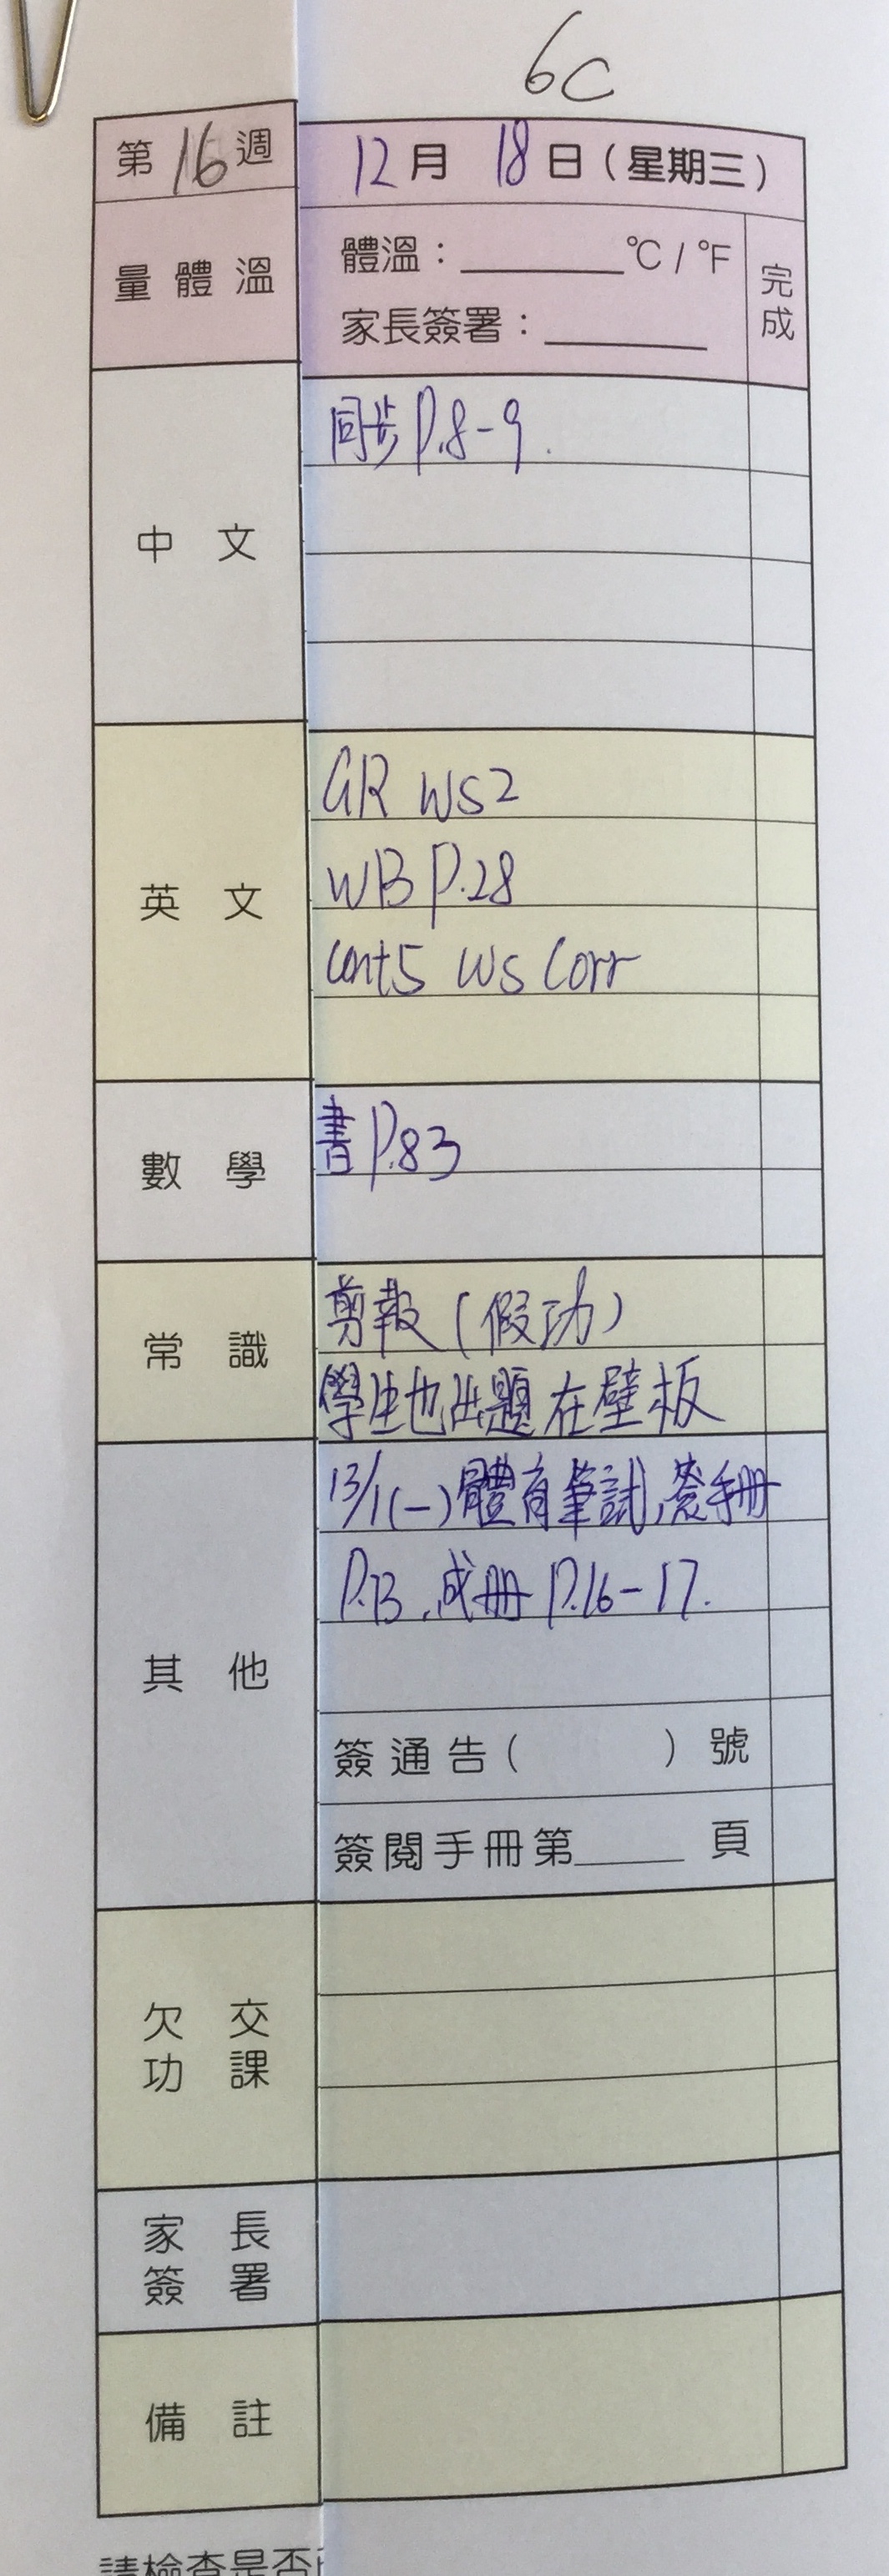 6C
第16週 12月18日(星期三)
量體溫 體溫：______℃/℉
家長簽署：______
完成
中文 同步P.8-9.
英文 GR WS2
WB P.28
unt5 WS Corr
數學 書P.83
常識 剪報(假功)
學生也出題在壁板
其他 13/1(一)體育筆試,簽手冊
P.13,成冊P.16-17.
簽通告( )號
簽閱手冊第____頁
欠交
功課
家長
簽署
備註
請檢查是否